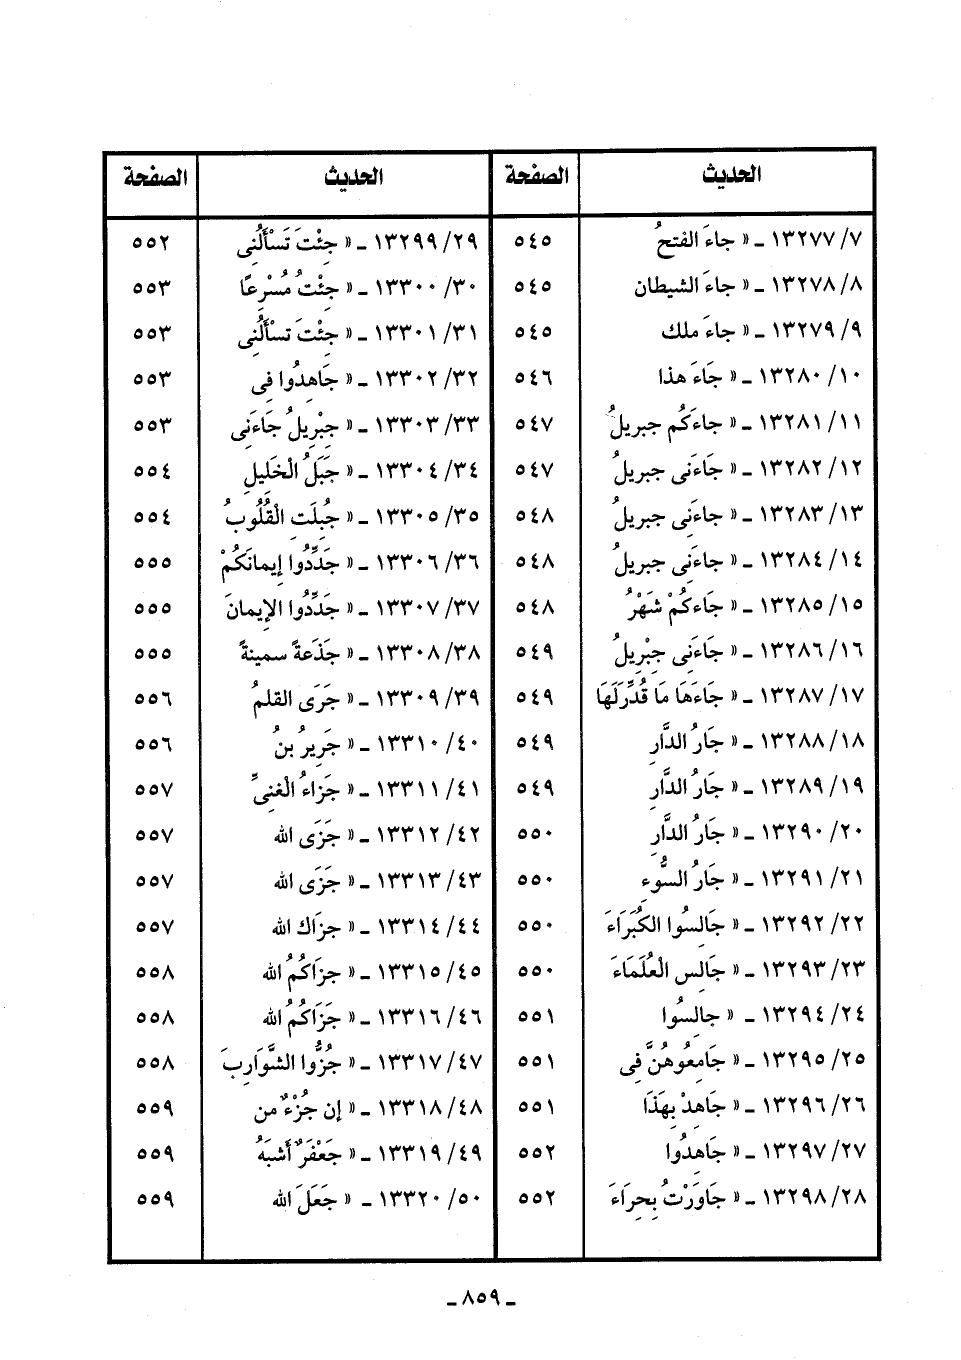 الحديث الصفحة الحديث الصفحة
٧/ ١٣٢٧٧ ـ « جاءَ الفتحُ ٥٤٥ ٢٩/ ١٣٢٩٩ ـ « جِئْتَ تَسْأَلُنِى ٥٥٢
٨/ ١٣٢٧٨ ـ « جاءَ الشيطان ٥٤٥ ٣٠/ ١٣٣٠٠ ـ « جِئْتُ مُسْرِعًا ٥٥٣
٩/ ١٣٢٧٩ ـ « جاءَ ملك ٥٤٥ ٣١/ ١٣٣٠١ ـ « جِئْتَ تسأَلُنِى ٥٥٣
١٠/ ١٣٢٨٠ ـ « جَاءَ هذا ٥٤٦ ٣٢/ ١٣٣٠٢ ـ « جَاهِدُوا فِى ٥٥٣
١١/ ١٣٢٨١ ـ « جاءَكُم جبريلُ ٥٤٧ ٣٣/ ١٣٣٠٣ ـ « جِبْرِيلُ جَاءَنِى ٥٥٣
١٢/ ١٣٢٨٢ ـ « جَاءَنِى جبريلُ ٥٤٧ ٣٤/ ١٣٣٠٤ ـ « جَبَلُ الْخَلِيلِ ٥٥٤
١٣/ ١٣٢٨٣ ـ « جاءَنِى جبريلُ ٥٤٨ ٣٥/ ١٣٣٠٥ ـ « جُبِلَتِ الْقُلُوبُ ٥٥٤
١٤/ ١٣٢٨٤ ـ « جاءَنِى جبريلُ ٥٤٨ ٣٦/ ١٣٣٠٦ ـ « جَدِّدُوا إِيمانَكُمْ ٥٥٥
١٥/ ١٣٢٨٥ ـ « جَاءكُمْ شَهْرُ ٥٤٨ ٣٧/ ١٣٣٠٧ ـ « جَدِّدُوا الإِيمانَ ٥٥٥
١٦/ ١٣٢٨٦ ـ « جَاءَنِى جِبْرِيلُ ٥٤٩ ٣٨/ ١٣٣٠٨ ـ « جَذَعةً سمينةً ٥٥٥
١٧/ ١٣٢٨٧ ـ « جَاءَهَا مَا قُدِّرَلَهَا ٥٤٩ ٣٩/ ١٣٣٠٩ ـ « جَرَى القلمُ ٥٥٦
١٨/ ١٣٢٨٨ ـ « جَارُ الدَّارِ ٥٤٩ ٤٠/ ١٣٣١٠ ـ « جَرِيرُ بنُ ٥٥٦
١٩/ ١٣٢٨٩ ـ « جَارُ الدَّارِ ٥٤٩ ٤١/ ١٣٣١١ ـ « جَزاءُ الْغنِىِّ ٥٥٧
٢٠/ ١٣٢٩٠ ـ « جَارُ الدَّارِ ٥٥٠ ٤٢/ ١٣٣١٢ ـ « جَزَى الله ٥٥٧
٢١/ ١٣٢٩١ ـ « جَارُ السُّوءِ ٥٥٠ ٤٣/ ١٣٣١٣ ـ « جَزَى الله ٥٥٧
٢٢/ ١٣٢٩٢ ـ « جَالِسُوا الكُبَرَاءَ ٥٥٠ ٤٤/ ١٣٣١٤ ـ « جزَاك الله ٥٥٧
٢٣/ ١٣٢٩٣ ـ « جَالِسِ الْعُلَمَاءَ ٥٥٠ ٤٥/ ١٣٣١٥ ـ « جزَاكُمُ الله ٥٥٨
٢٤/ ١٣٢٩٤ ـ « جالِسُوا ٥٥١ ٤٦/ ١٣٣١٦ ـ « جَزَاكُمُ الله ٥٥٨
٢٥/ ١٣٢٩٥ ـ « جَامِعُوهُنَّ فِى ٥٥١ ٤٧/ ١٣٣١٧ ـ « جُزُّوا الشَّوَارِبَ ٥٥٨
٢٦/ ١٣٢٩٦ ـ « جَاهِدْ بِهَذَا ٥٥١ ٤٨/ ١٣٣١٨ ـ « إن جُزْءٌ من ٥٥٩
٢٧/ ١٣٢٩٧ ـ « جَاهِدُوا ٥٥٢ ٤٩/ ١٣٣١٩ ـ « جَعْفَرٌ أَشبَهُ ٥٥٩
٢٨/ ١٣٢٩٨ ـ « جَاوَرْتُ بِحِرَاءَ ٥٥٢ ٥٠/ ١٣٣٢٠ ـ « جَعَلَ الله ٥٥٩
ـ ٨٥٩ ـ